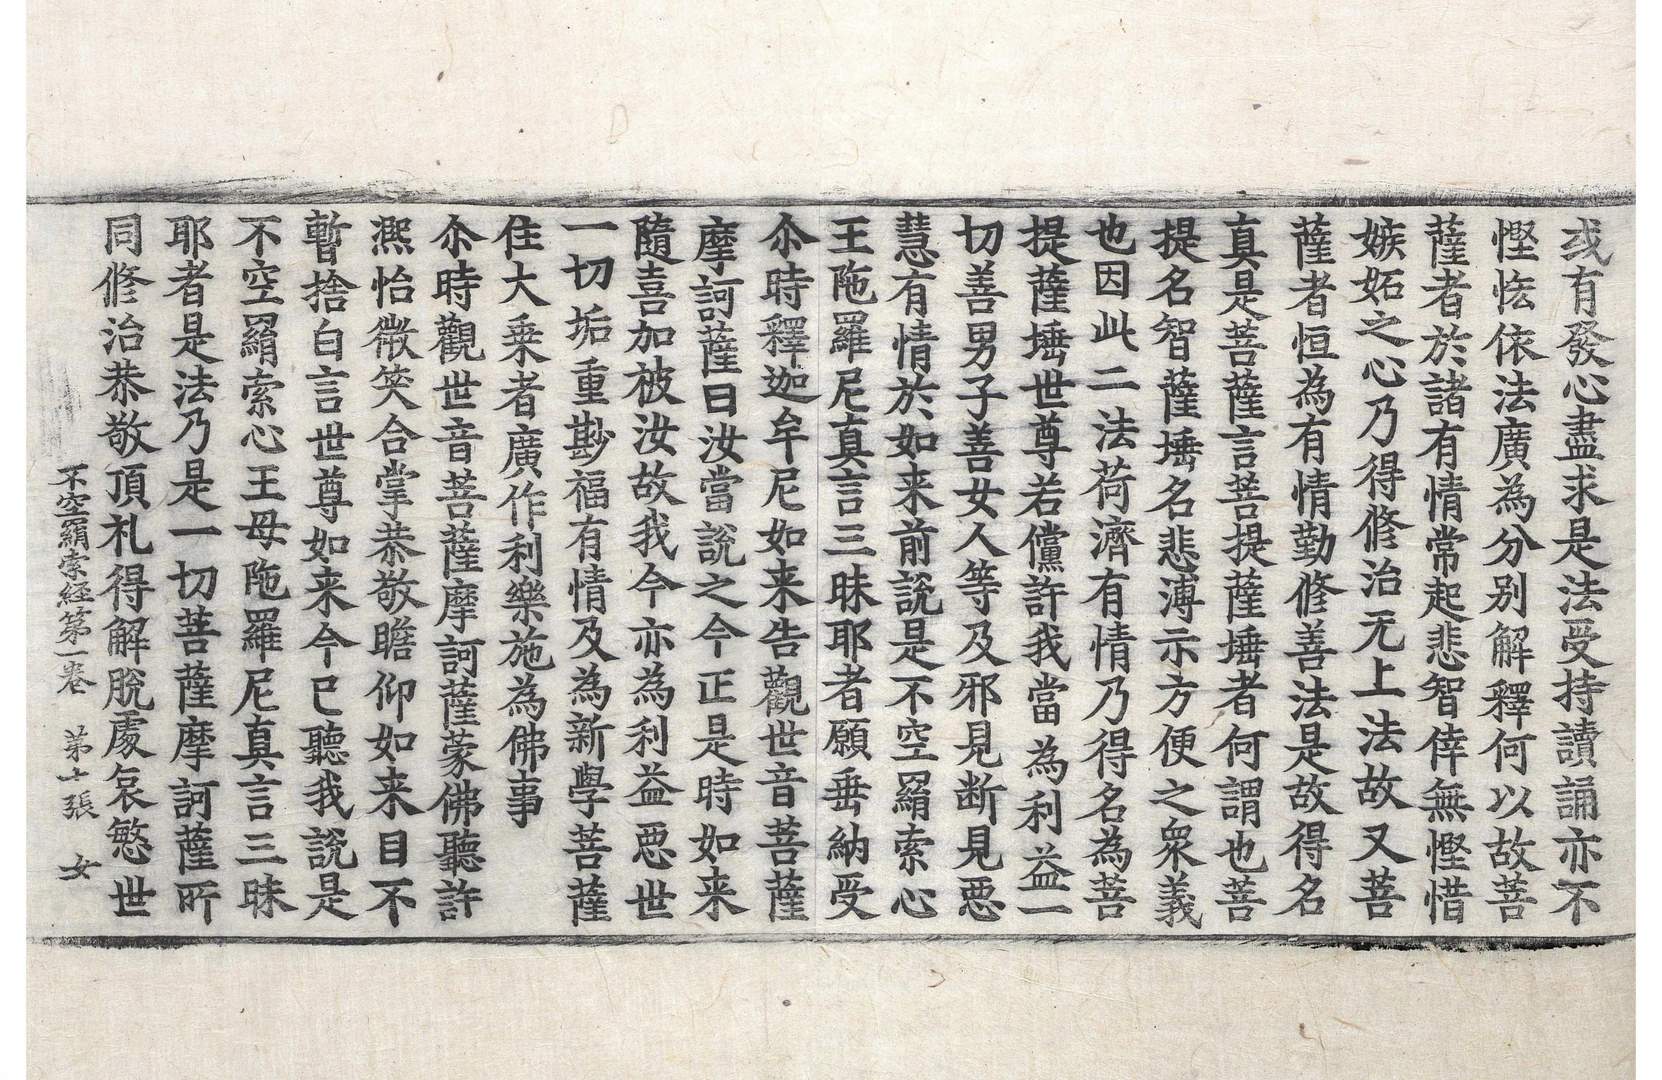 或有發心盡求是法受持讀誦亦不
慳恡依法廣為分别解釋何以故菩
薩者於諸有情常起悲智倖無慳惜
嫉妬之心乃得修治无上法故又菩
薩者恒為有情勤修善法是故得名
真是菩薩言菩提薩埵者何謂也菩
提名智薩埵名悲溥示方便之衆義
也因此二法荷濟有情乃得名為菩
提薩埵世尊若儻許我當為利益一
切善男子善女人等及邪見断見惡
慧有情於如来前説是不空羂索心
王陁羅尼真言三昧耶者願垂納受
尒時釋迦牟尼如来告觀世音菩薩
摩訶薩曰汝當説之今正是時如来
隨喜加被汝故我今亦為利益惡世
一切垢重尠福有情及為新學菩薩
住大乗者廣作利樂施為佛事
尒時觀世音菩薩摩訶薩蒙佛聽許
熈怡微笑合掌恭敬瞻仰如来目不
暫捨白言世尊如来今已聽我說是
不空羂索心王母陁羅尼真言三昧
耶者是法乃是一切菩薩摩訶薩所
同修治恭敬頂礼得解脫處哀愍世
不空羂索経第一卷 第十張 女